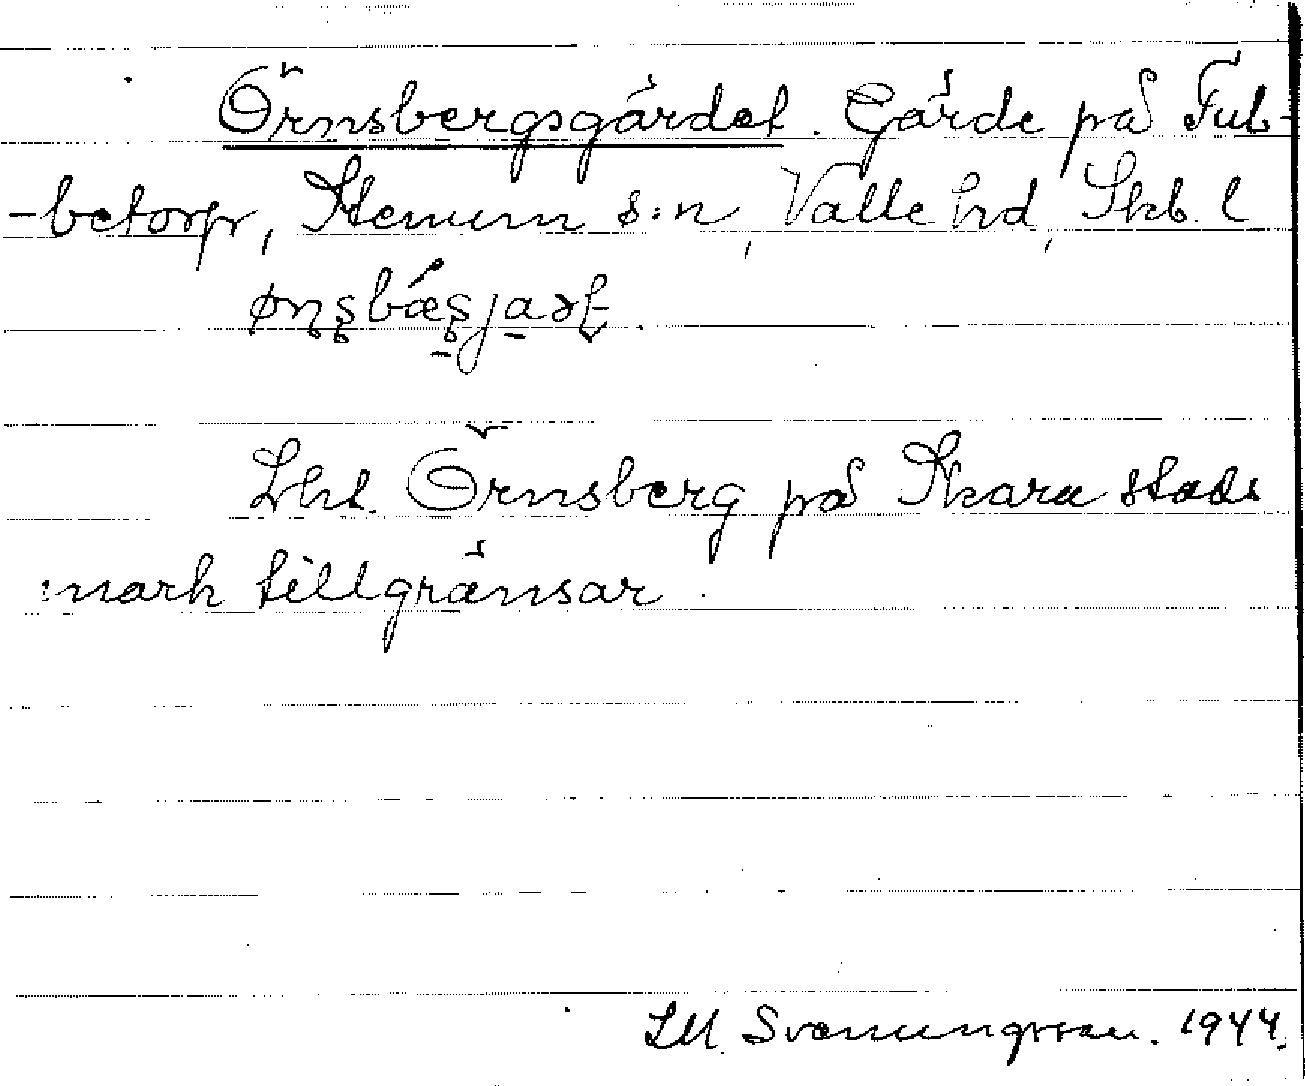 Örnsbergsgärdet. Gärde på Tub-
-betorp, Stenum s:n, Valle hd, Skb. l
Lht. Örnsberg på Skara stads
mark tillgränsar.
LM. Svanungsson. 1944.